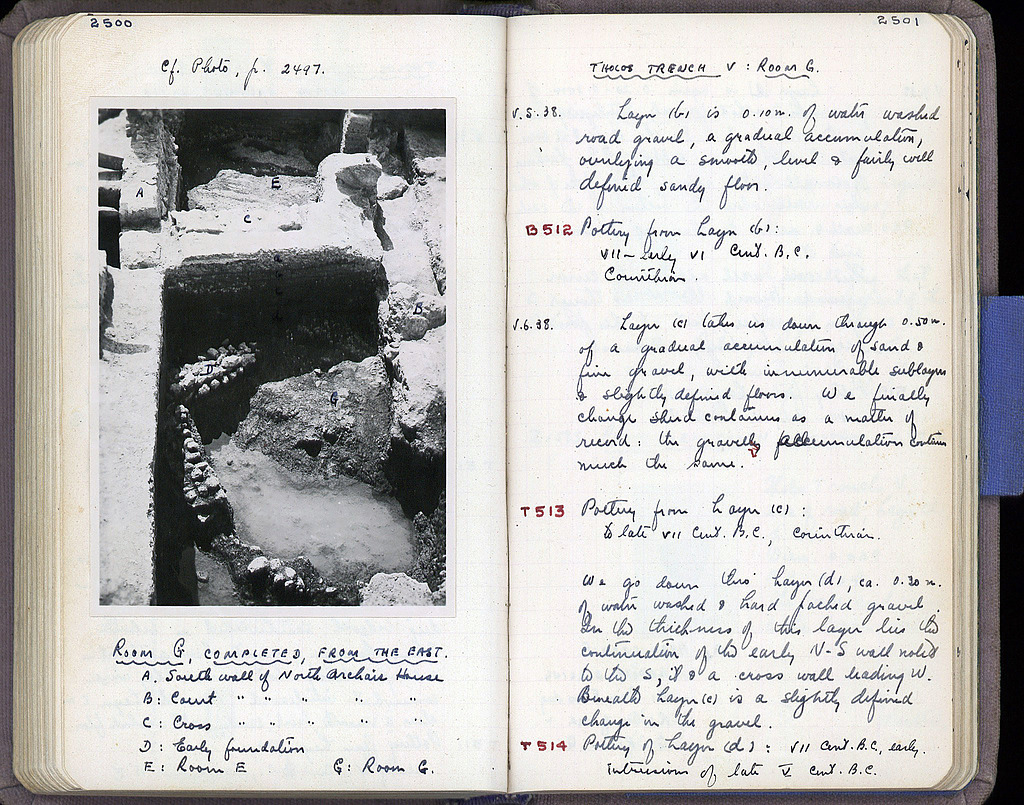 2500
Cf. Photo, p. 2497.
A
E
C
B
D
G
ROOM G, COMPLETED, FROM THE EAST.
A: South wall of North Archaic House
B: Court " " " " "
C: Cross " " " " "
D: Early foundation
E: Room E G: Room G.
2501
THOLOS TRENCH V : ROOM G.
V.5.38. Layer (b) is 0.10 m. of water washed
road gravel, a gradual accumulation,
overlying a smooth, level & fairly well
defined sandy floor.
B512 Pottery from Layer (b):
VII – early VI Cent. B.C.
Corinthian.
V.6.38. Layer (c) takes us down through 0.50 m.
of a gradual accumulation of sand &
fine gravel, with innumerable sublayers
& slightly defined floors. We finally
change sherd containers as a matter of
record: the gravelly accumulation contains
much the same.
T513 Pottery from Layer (c):
to late VII Cent. B.C., Corinthian.
We go down thro' Layer (d), ca. 0.30 m.
of water washed & hard packed gravel.
In the thickness of this layer lies the
continuation of the early N-S wall noted
to the S, & a cross wall leading W.
Beneath Layer (c) is a slightly defined
change in the gravel.
T514 Pottery of Layer (d): VII Cent. B.C., early.
Intrusions of late V Cent. B.C.